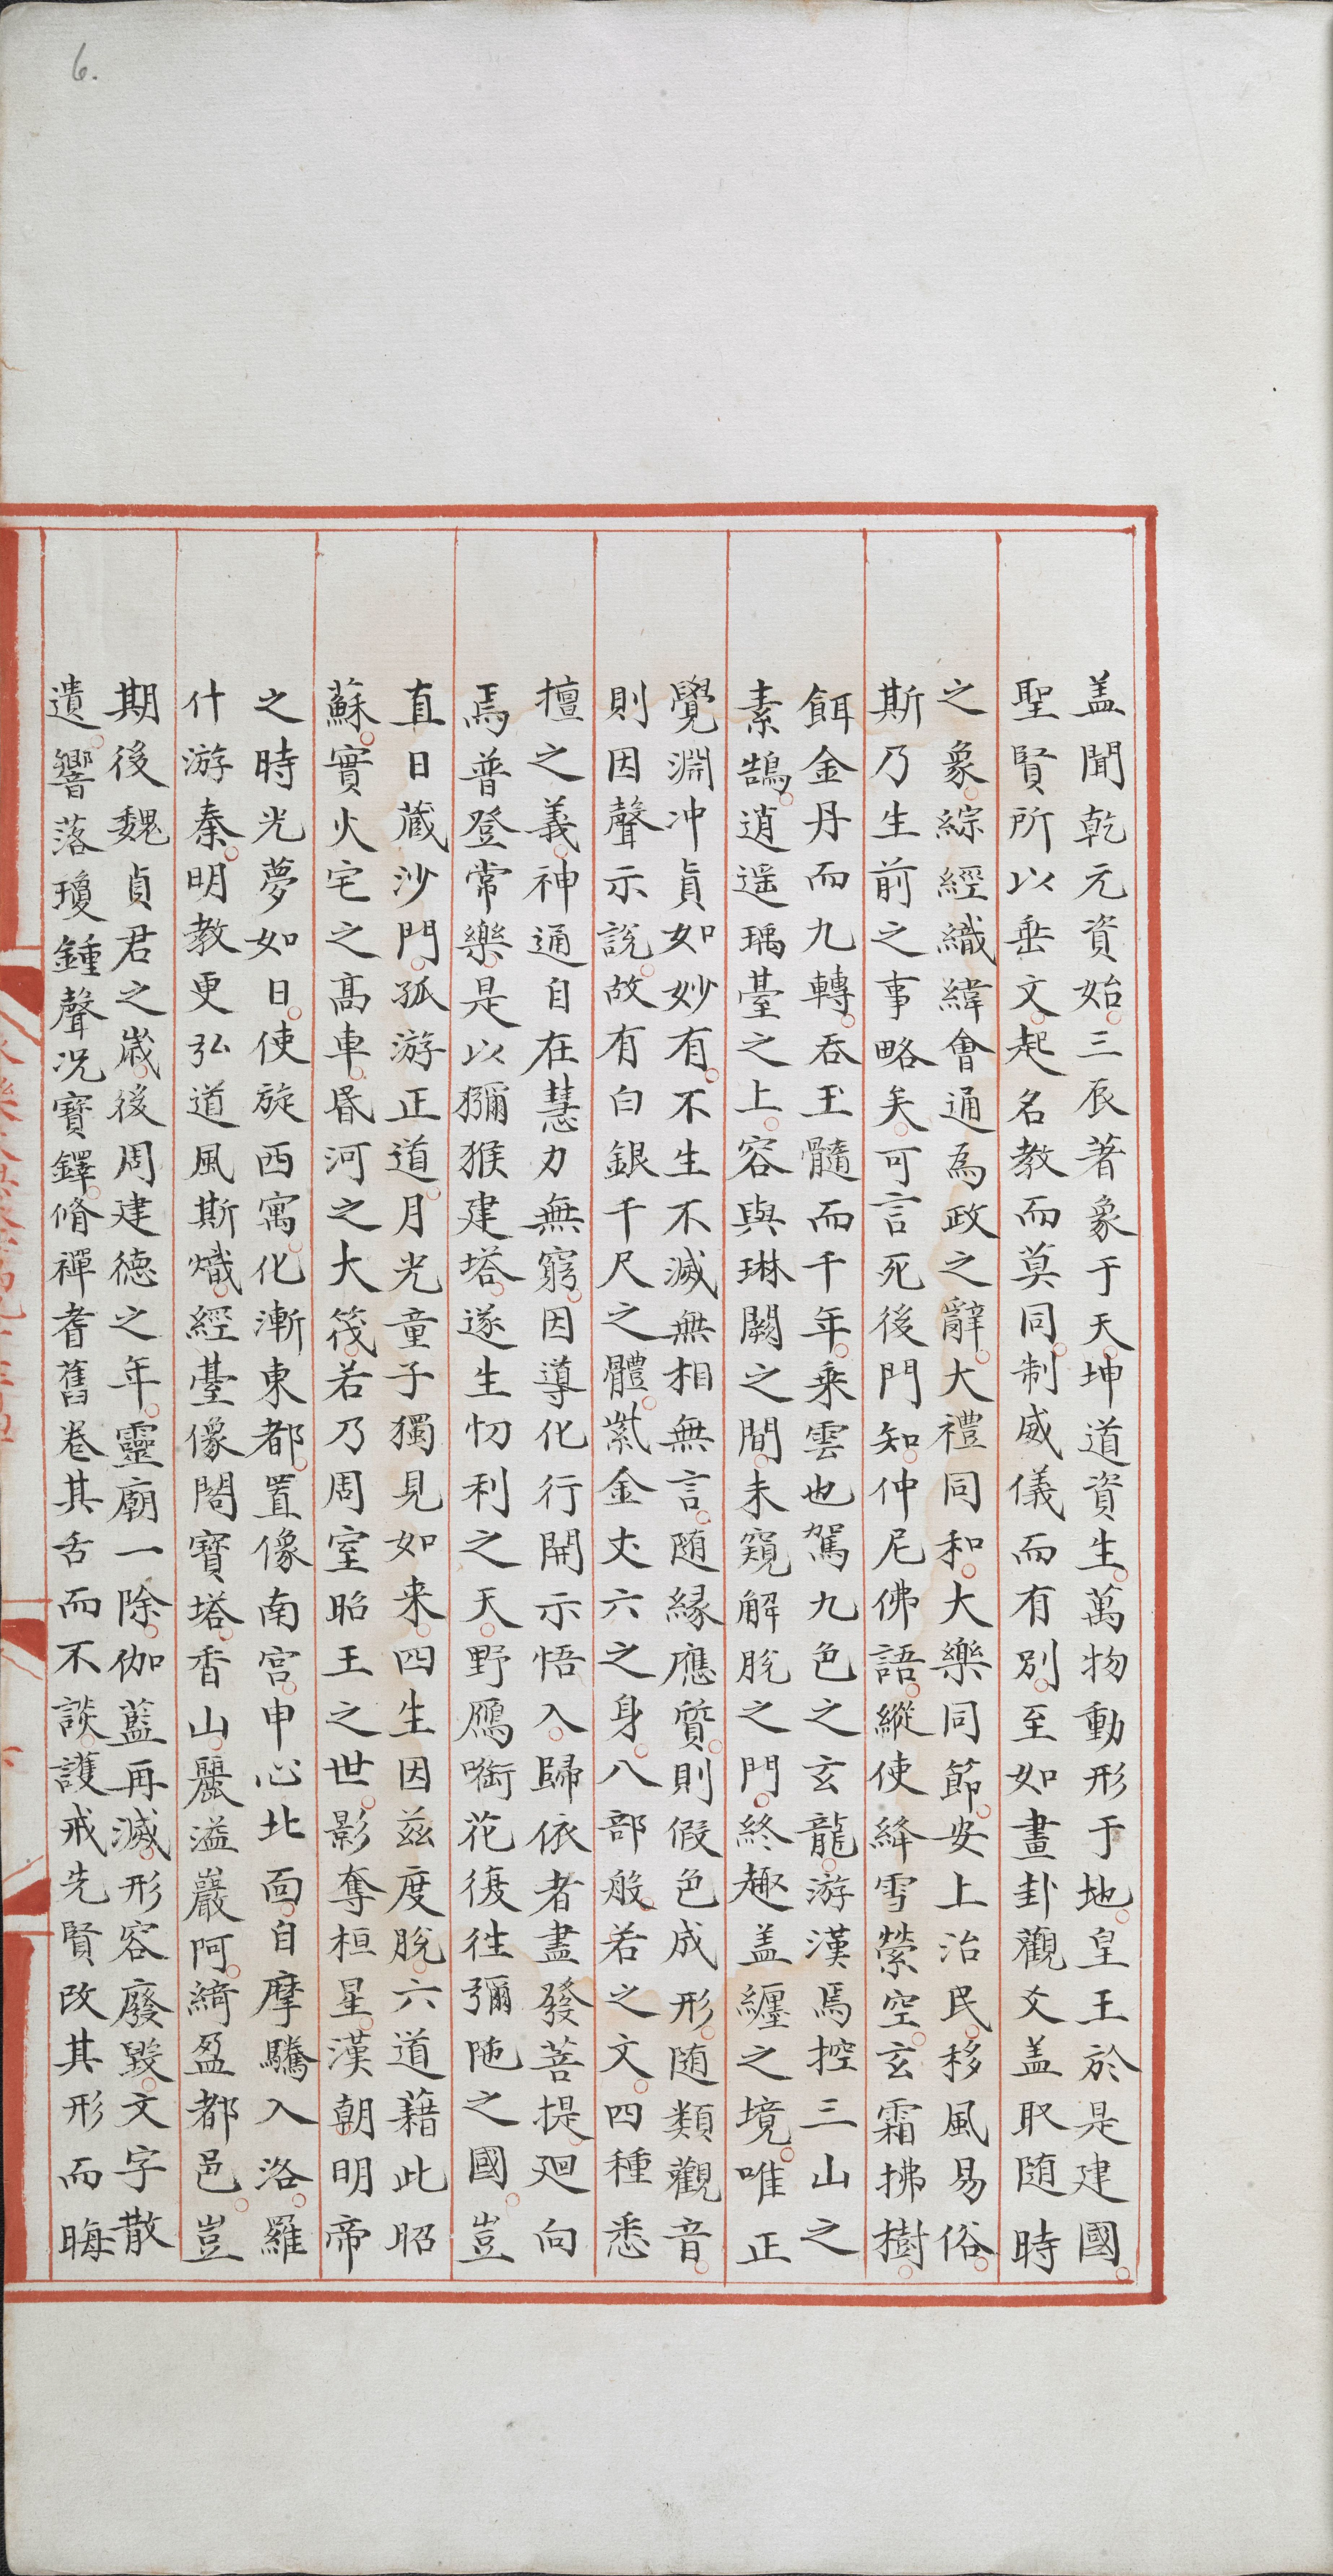 6.
盖聞乾元資始。三辰著象于天。坤道資生。萬物動形于地。皇王於是建國。
聖賢所以垂文。起名教而莫同。制威儀而有別。至如畫卦觀爻。盖取随時
之象。綜經織緯。會通為政之辭。大禮同和。大樂同節。安上治民。移風易俗。
斯乃生前之事略矣。可言死後門知。仲尼佛語。縱使絳雪縈空。玄霜拂樹。
餌金丹而九轉。吞玉髓而千年。乘雲也駕九色之玄龍。游漢焉控三山之
素鵠。逍遥瑀臺之上。容與琳闕之間。未窺解脫之門。終趣盖纏之境。唯正
覺淵冲。貞如妙有。不生不滅。無相無言。随緣應質。則假色成形。随類觀音。
則因聲示說。故有白銀千尺之體。紫金丈六之身。八部般若之文。四種悉
檀之義。神通自在。慧力無窮。因導化行。開示悟入。歸依者盡發菩提。廻向
焉普登常樂。是以獼猴建塔。遂生忉利之天。野鴈㗸花。復徃彌陁之國。豈
直日藏沙門。孤游正道。月光童子。獨見如来。四生因兹度脫。六道藉此昭
蘇。實火宅之高車。昬河之大筏。若乃周室昭王之世。影奪桓星。漢朝明帝
之時。光夢如日。使旋西寓。化漸東都。置像南宫。申心北面。自摩騰入洛。羅
什游秦。明教更弘。道風斯熾。經臺像閣。寶塔香山。麗溢巖阿。綺盈都邑。豈
期後魏貞君之歲。後周建德之年。靈廟一除。伽藍再滅。形容廢毁。文字散
遺。響落瓊鍾。聲况寶鐸。脩禪耆舊。卷其舌而不談。護戒先賢。改其形而晦